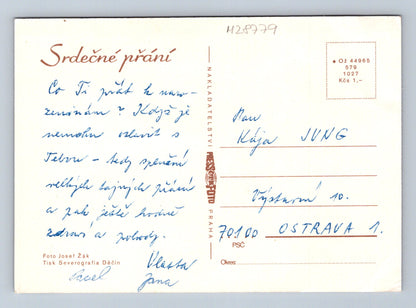 H28779
Srdečné přání
Co Ti přát k naro-
zeninám? Když je
nemohu oslavit s
Tebou – tedy splnění
velkých tajných přání
a pak ještě hodně
zdraví a pohody.
Vlasta
Jana
Foto Josef Žák
Tisk Severografia Děčín
NAKLADATELSTVÍ
PRESSFOTO
PRAHA
● OJ 44965
579
1027
Kčs 1,–
Pan
Kája JUNG
Výstavní 10.
70100 OSTRAVA 1.
PSČ
Okres: